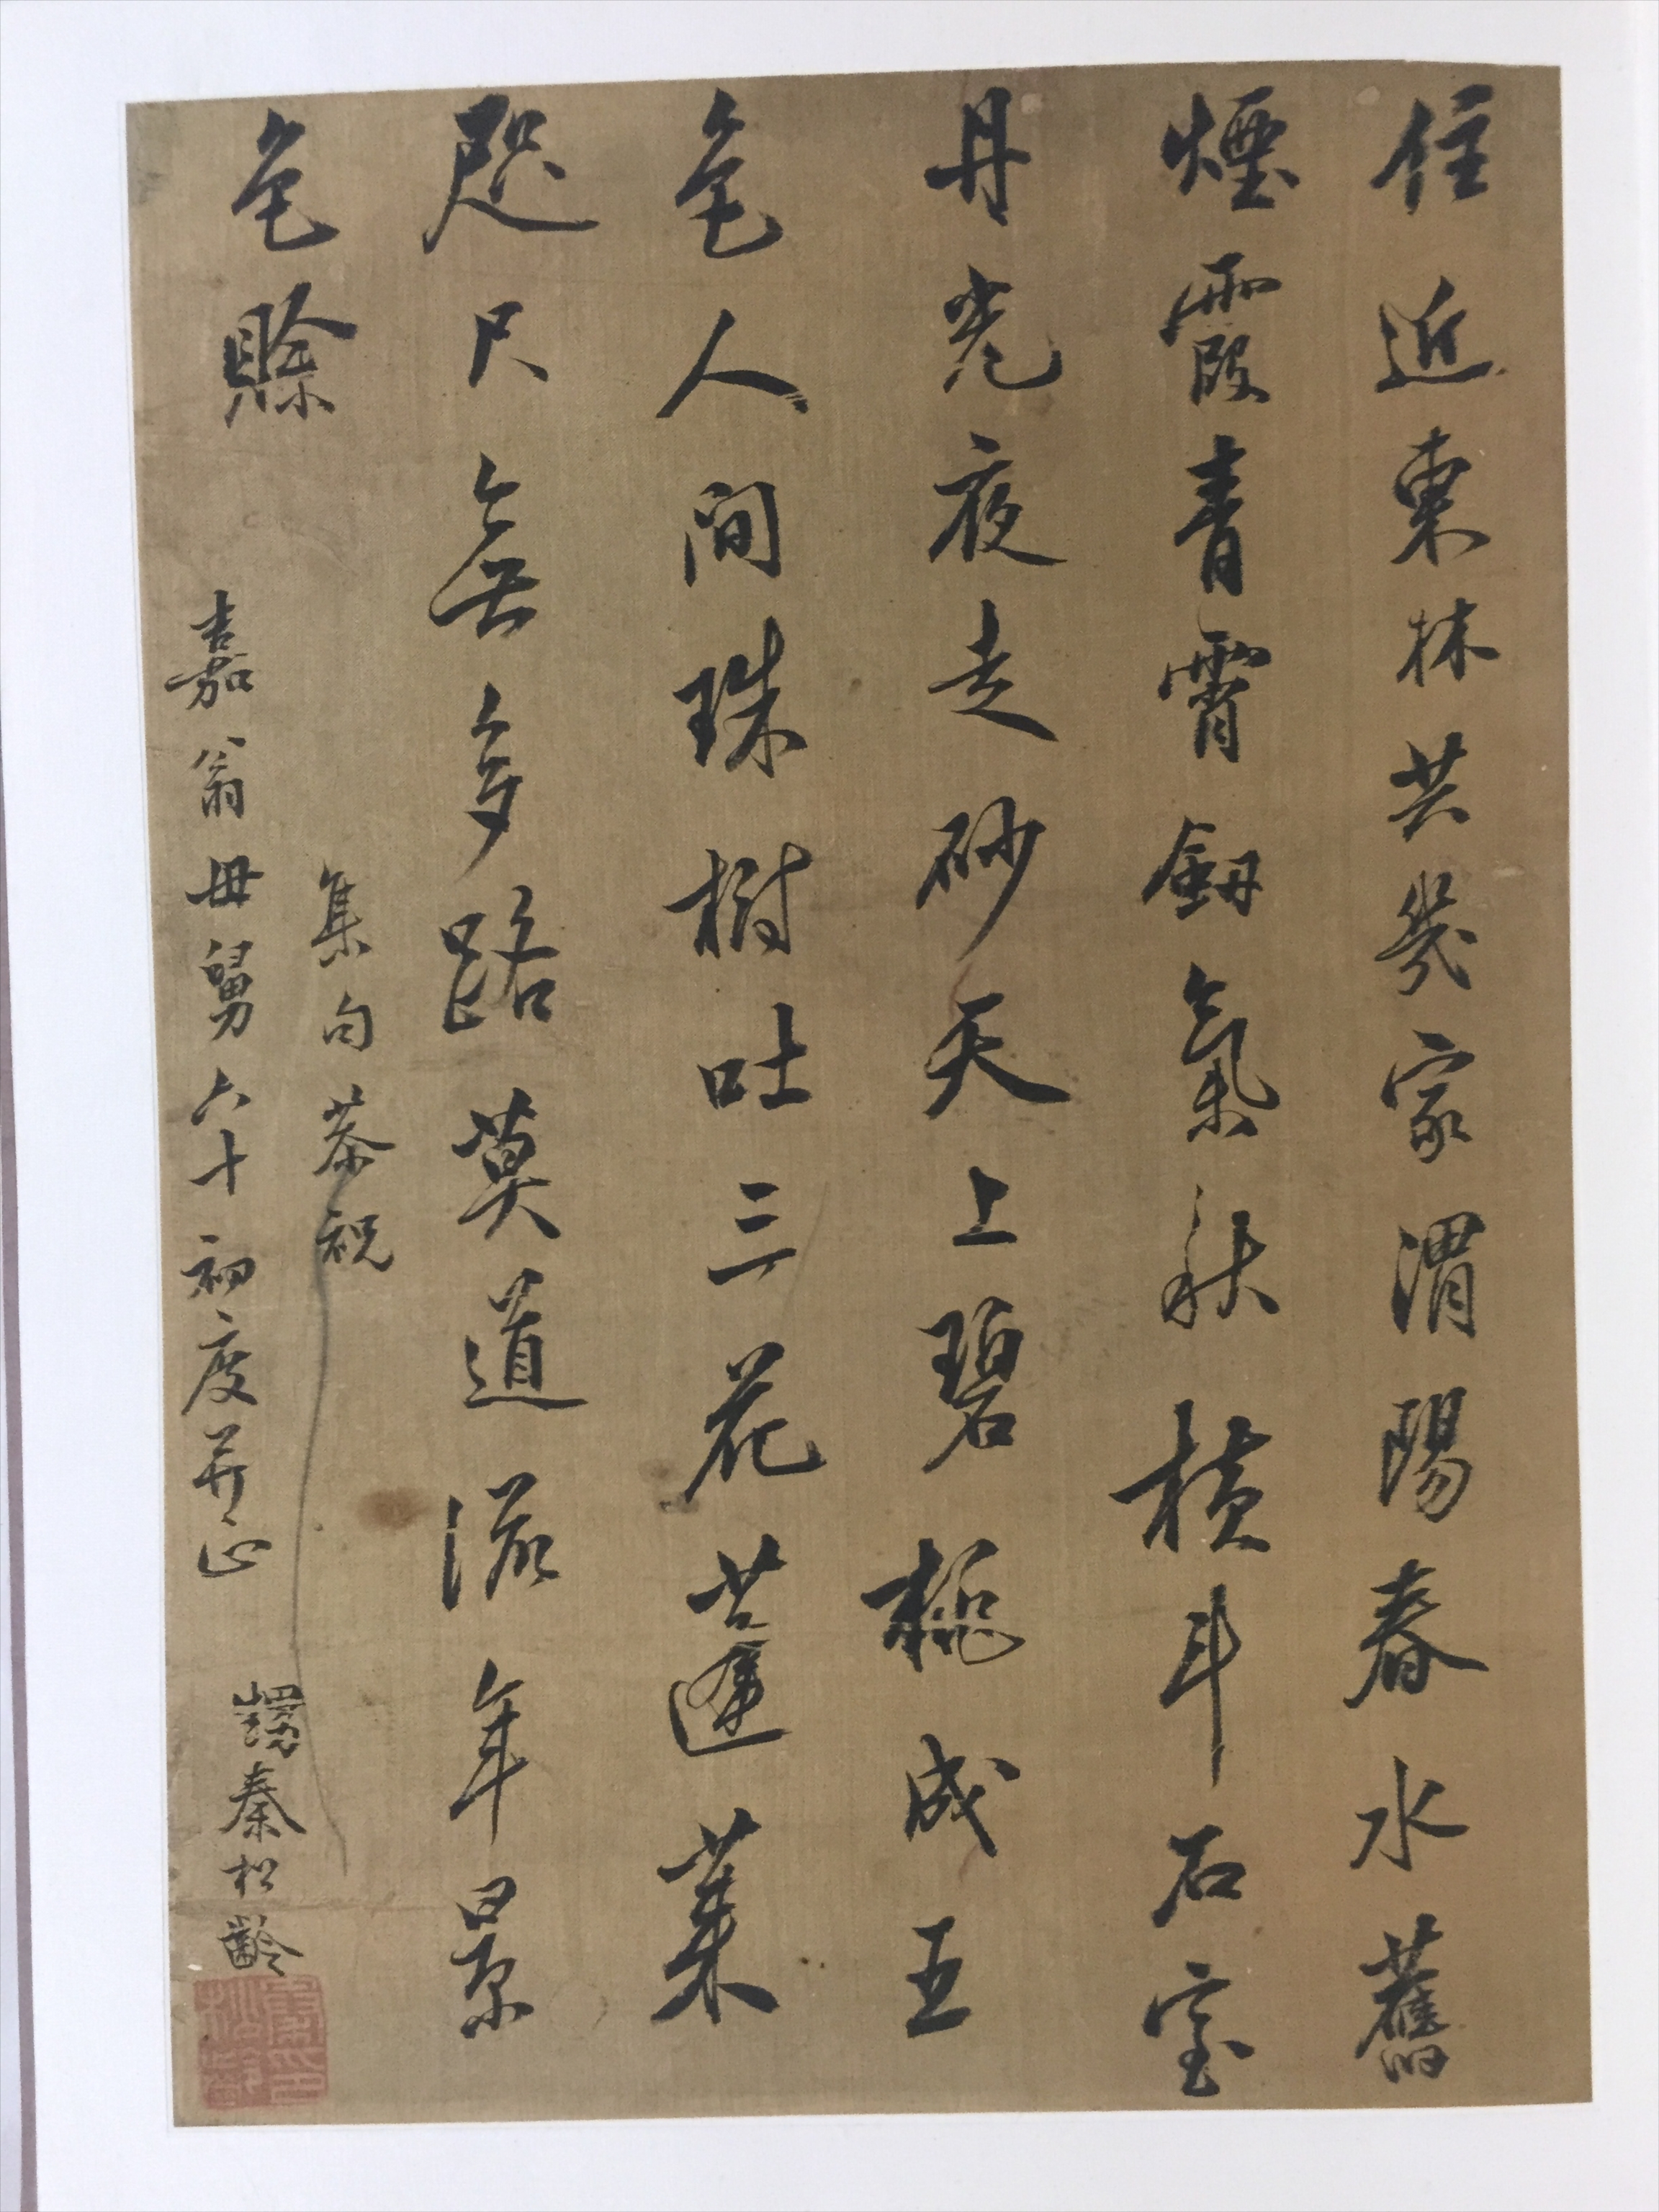 住近東林共幾家渭陽春水舊
煙霞青霄劔氣秋橫斗石室
丹光夜走砂天上碧桃成五
色人間珠樹吐三花蓬萊
咫尺無多路莫道流年景
色賒
集句恭祝
嘉翁母舅六十初度并正
甥秦松齡